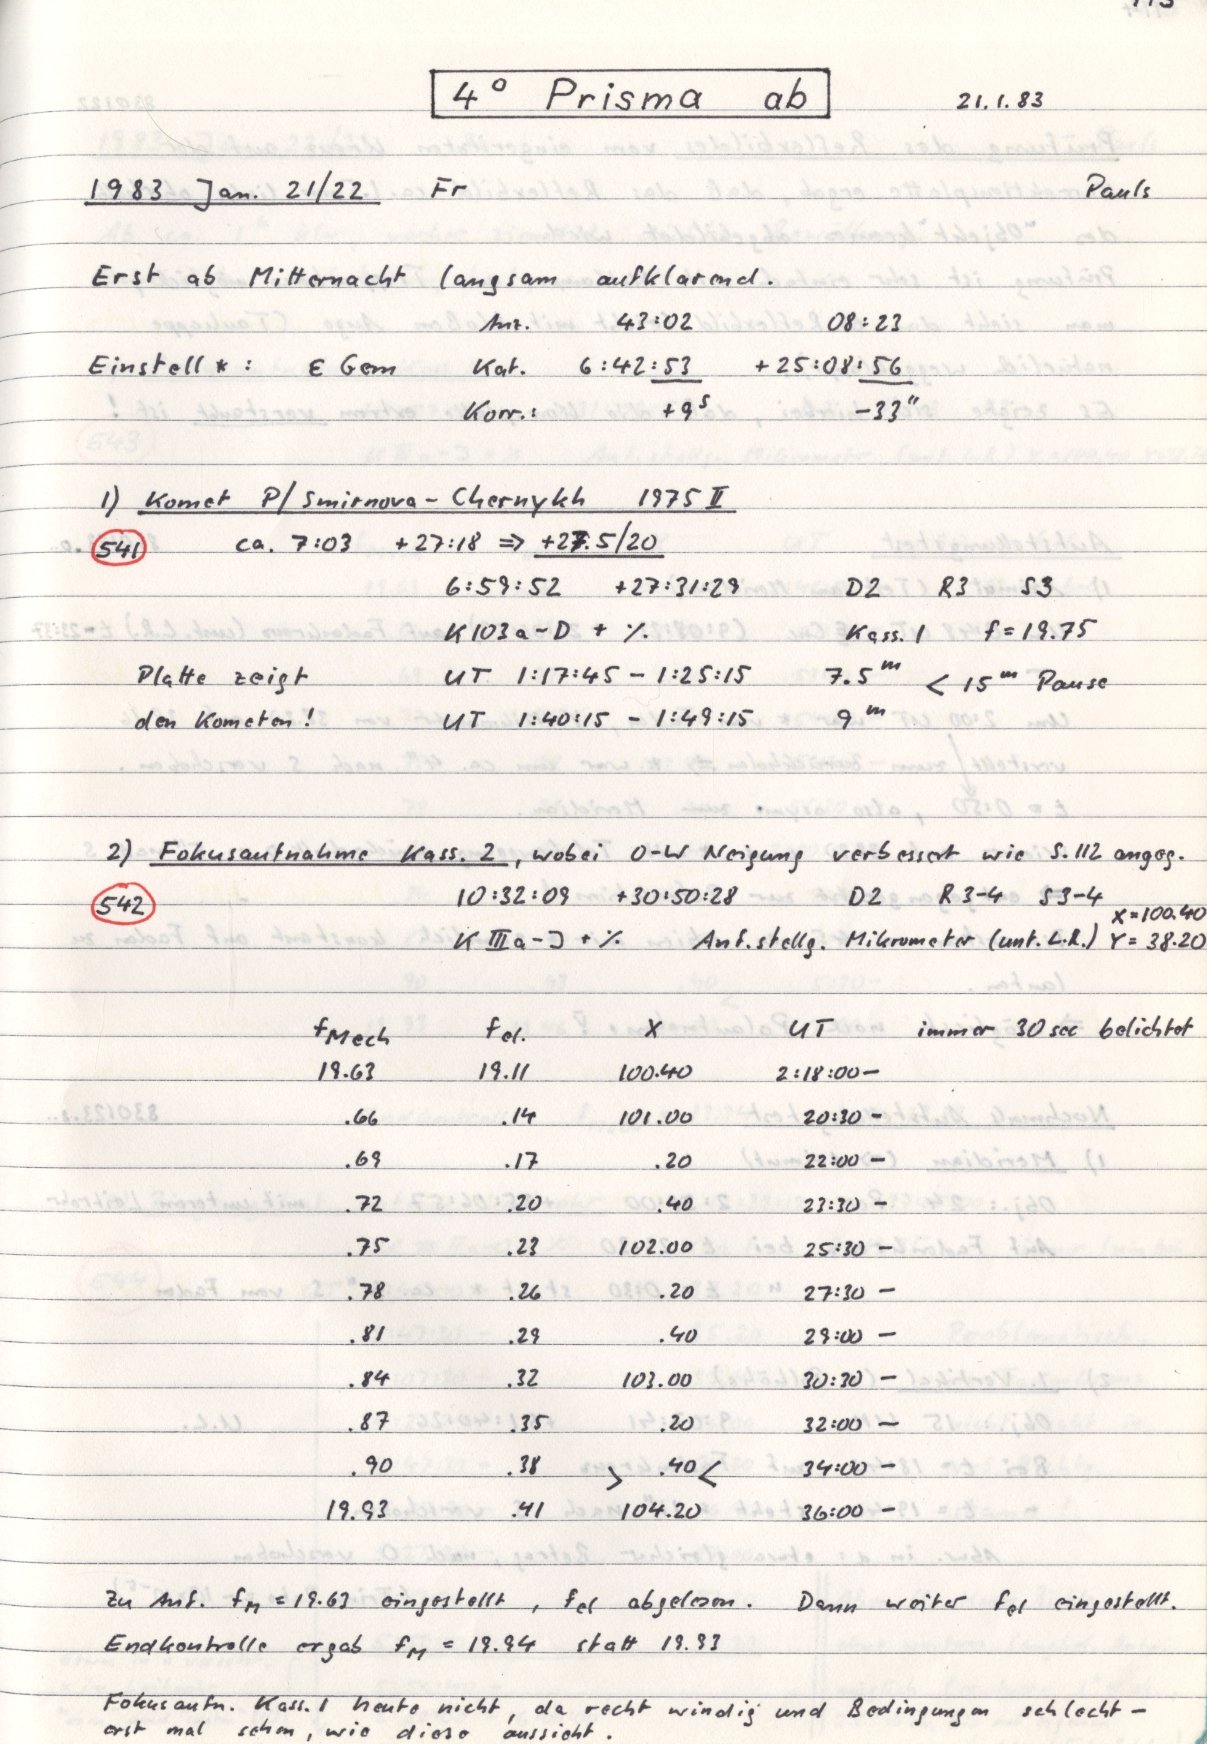 4° Prisma ab 21.1.83
1983 Jan. 21/22 Fr Pauls
Erst ab Mitternacht langsam aufklarend.
Anz. 43:02 08:23
Einstell *: ε Gem Kat. 6:42:53 +25:08:56
Korr.: +9ˢ -33"
1) Komet P/Smirnova-Chernykh 1975 II
541 ca. 7:03 +27:18 ⇒ +27.5/20
6:59:52 +27:31:29 D2 R3 S3
K103a-D + % Kass.1 f=19.75
Platte zeigt UT 1:17:45 - 1:25:15 7.5ᵐ < 15ᵐ Pause
den Kometen! UT 1:40:15 - 1:49:15 9ᵐ
2) Fokusaufnahme Kass. 2, wobei O-W Neigung verbessert wie S.112 angeg.
542 10:32:09 +30:50:28 D2 R3-4 S3-4 X=100.40
K IIIa-J + % Anf.stellg. Mikrometer (unt. L.R.) Y=38.20
fMech fel. X UT immer 30sec belichtet
19.63 19.11 100.40 2:18:00-
.66 .14 101.00 20:30-
.69 .17 .20 22:00-
.72 .20 .40 23:30-
.75 .23 102.00 25:30-
.78 .26 .20 27:30-
.81 .29 .40 29:00-
.84 .32 103.00 30:30-
.87 .35 .20 32:00-
.90 .38 > .40 < 34:00-
19.93 .41 104.20 36:00-
Zu Anf. fM = 19.63 eingestellt, fel abgelesen. Dann weiter fel eingestellt.
Endkontrolle ergab fM = 19.94 statt 19.93
Fokusaufn. Kass.1 heute nicht, da recht windig und Bedingungen schlecht -
erst mal sehen, wie diese aussieht.